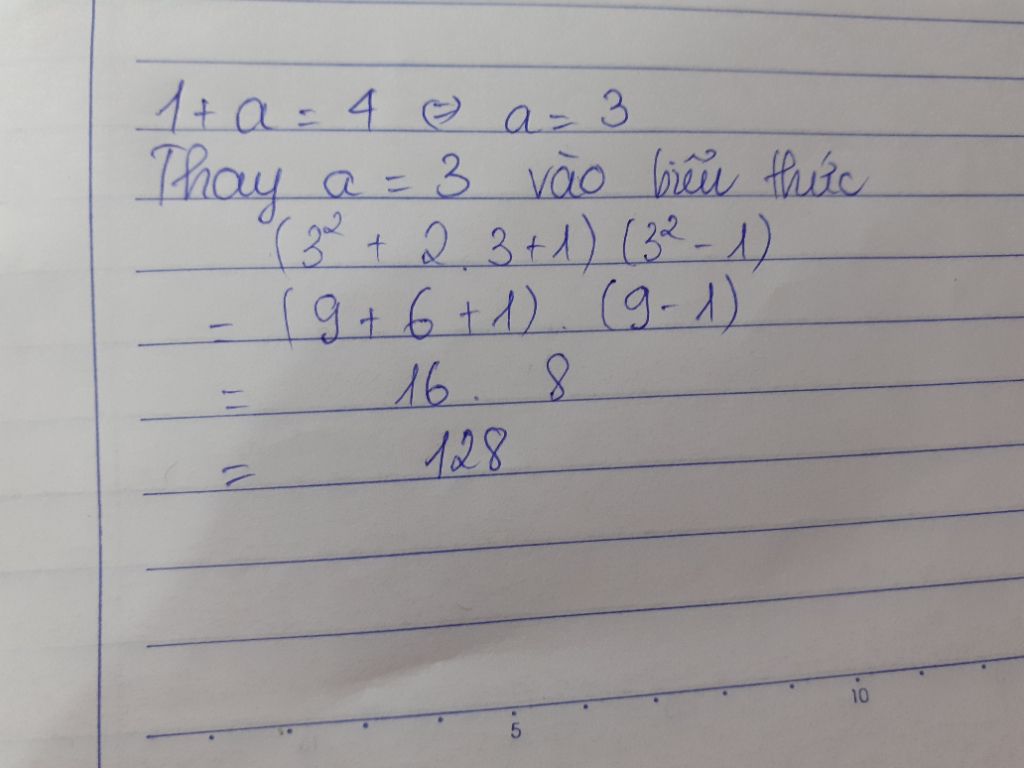 1 + a = 4 ⇔ a = 3
Thay a = 3 vào biểu thức
(3² + 2 . 3 + 1) (3² - 1)
= (9 + 6 + 1) . (9 - 1)
= 16 . 8
= 128
5 10